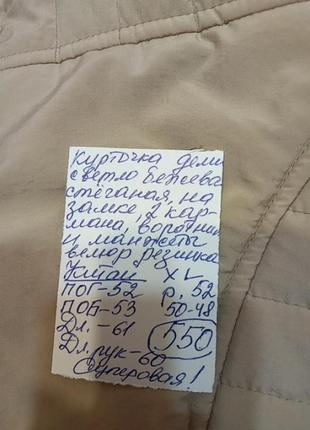 Курточка деми
светло бежева
стёганая, на
замке, 2 кар-
мана, воротник
и манжеты
велюр резинка
Китай XL
ПОГ-52 р. 52
ПОБ-53 50-48
Дл. -61 550
Дл. рук-60
Суперовая!